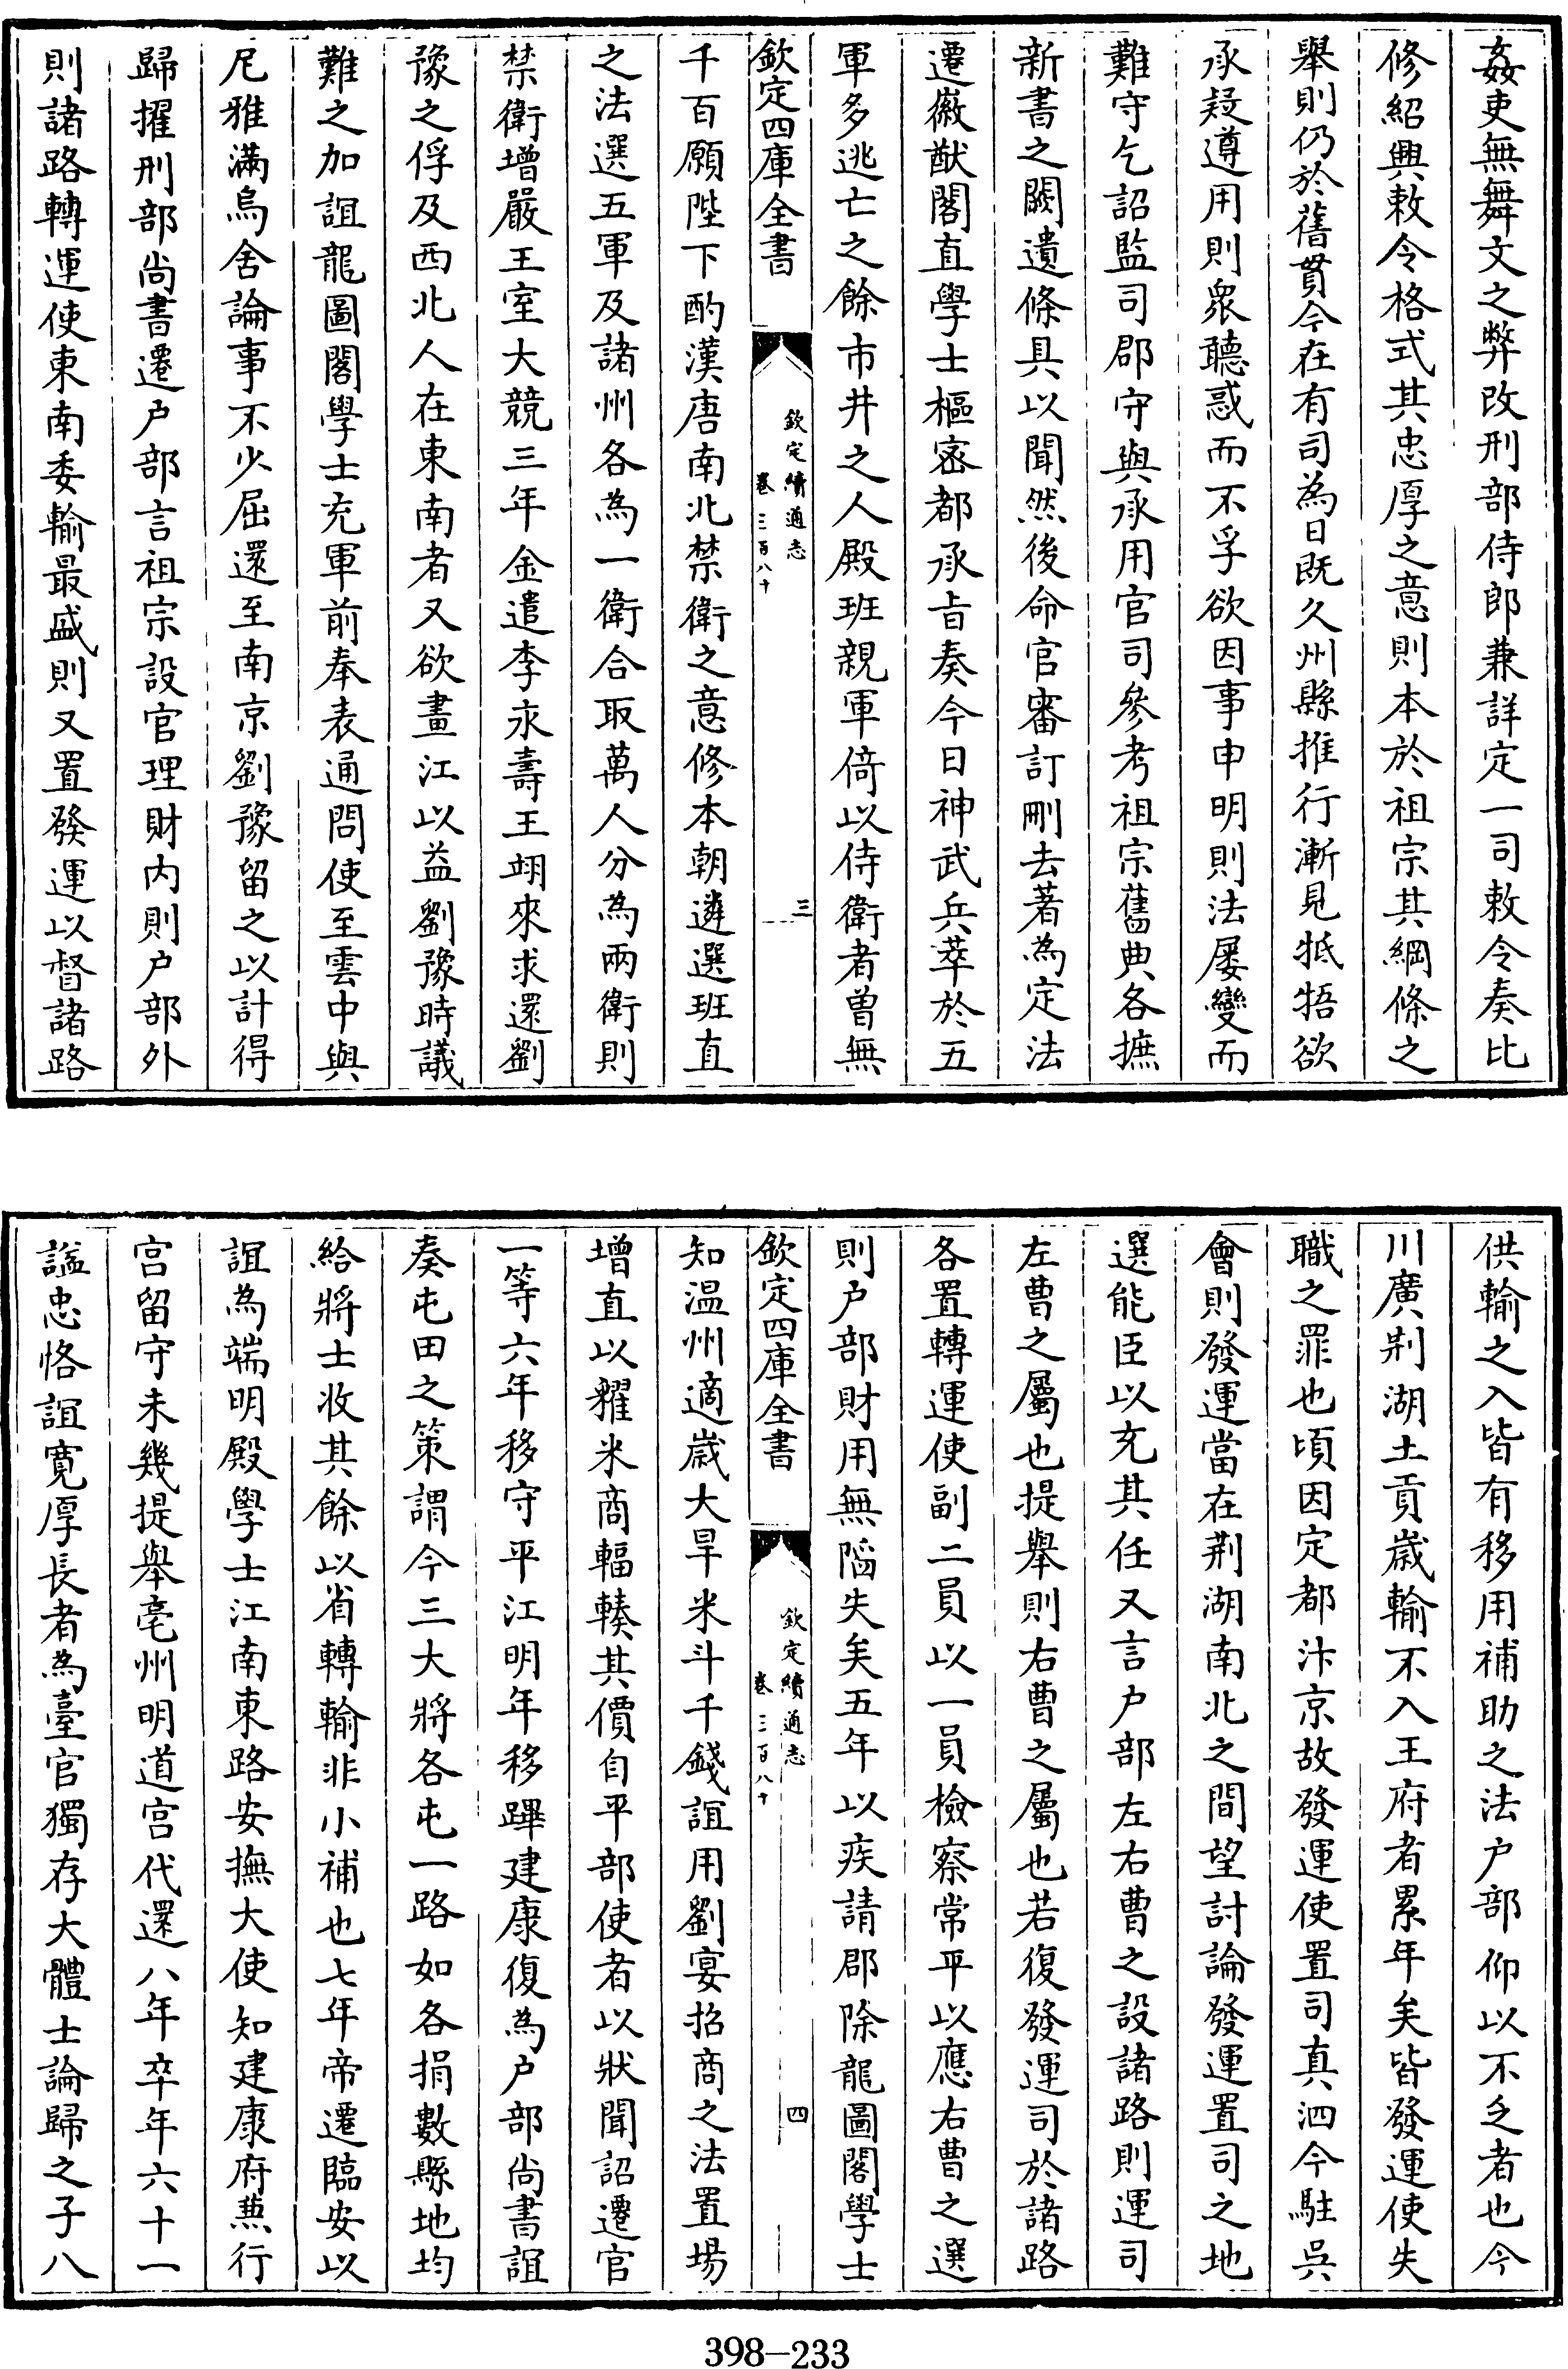 姦吏無舞文之弊改刑部侍郎兼詳定一司敕令奏比
修紹興敕令格式其忠厚之意則本於祖宗其綱條之
舉則仍於舊貫今在有司為日既久州縣推行漸見牴牾欲
承疑遵用則衆聽惑而不孚欲因事申明則法屢變而
難守乞詔監司郡守與承用官司參考祖宗舊典各摭
新書之闕遺條具以聞然後命官審訂刪去著為定法
遷徽猷閣直學士樞密都承旨奏今日神武兵萃於五
軍多逃亡之餘市井之人殿班親軍倚以侍衛者曾無
欽定四庫全書
欽定續通志
卷三百八十
三
千百願陛下酌漢唐南北禁衛之意修本朝遴選班直
之法選五軍及諸州各為一衛合取萬人分為兩衛則
禁衛增嚴王室大競三年金遣李永壽王翊來求還劉
豫之俘及西北人在東南者又欲畫江以益劉豫時議
難之加誼龍圖閣學士充軍前奉表通問使至雲中與
尼雅滿烏舍論事不少屈還至南京劉豫留之以計得
歸擢刑部尚書遷户部言祖宗設官理財内則户部外
則諸路轉運使東南委輸最盛則又置發運以督諸路
供輸之入皆有移用補助之法户部仰以不乏者也今
川廣荆湖土貢歲輸不入王府者累年矣皆發運使失
職之罪也頃因定都汴京故發運使置司真泗今駐吳
會則發運當在荆湖南北之間望討論發運置司之地
選能臣以充其任又言户部左右曹之設諸路則運司
左曹之屬也提舉則右曹之屬也若復發運司於諸路
各置轉運使副二員以一員檢察常平以應右曹之選
則户部財用無陷失矣五年以疾請郡除龍圖閣學士
欽定四庫全書
欽定續通志
卷三百八十
四
知温州適歲大旱米斗千錢誼用劉宴招商之法置場
增直以糴米商輻輳其價自平部使者以狀聞詔遷官
一等六年移守平江明年移蹕建康復為户部尚書誼
奏屯田之策謂今三大將各屯一路如各捐數縣地均
給將士收其餘以省轉輸非小補也七年帝遷臨安以
誼為端明殿學士江南東路安撫大使知建康府兼行
宫留守未幾提舉亳州明道宫代還八年卒年六十一
諡忠恪誼寛厚長者為臺官獨存大體士論歸之子八
398-233